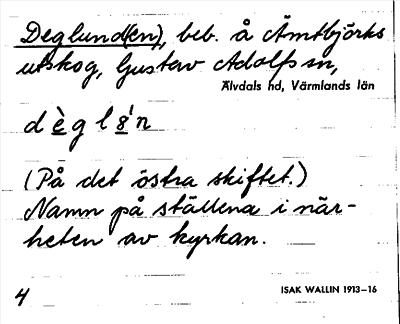 Deglund(en), beb. å Ämtbjörks
utskog, Gustav Adolfs sn,
Älvdals hd, Värmlands län
d è g l 8̍ n
(På det östra skiftet.)
Namn på ställena i när-
heten av kyrkan.
4
ISAK WALLIN 1913-16